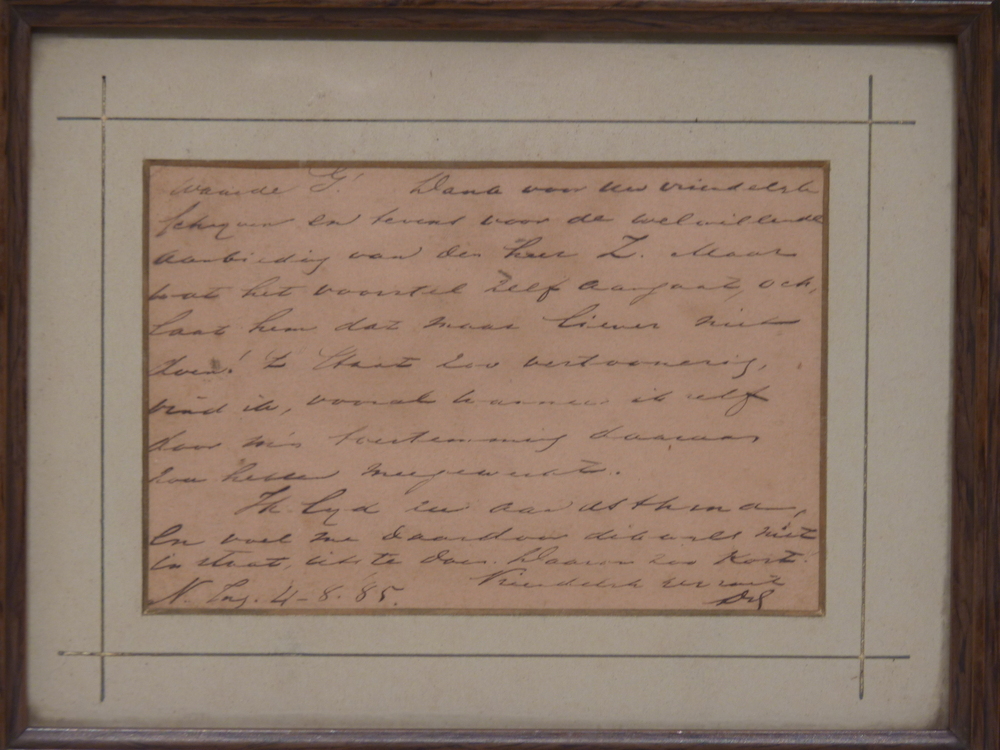 Waarde G! Dank voor uw vriendelijk
schrijven en tevens voor de welwillende
aanbieding van den heer Z. Maar
wat het voorstel zelf aangaat, och,
laat hem dat maar liever niet
doen! 't Staat zoo vertoonerig,
vind ik, vooral wanneer ik zelf
door mijn toestemming daaraan
zou hebben meegewerkt.
Ik lijd aan asthma,
en voel me daardoor dikwijls niet
in staat, iets te doen. Daarom zoo kort.
Vriendelijk gegroet
N. Ing. 4-8-85.